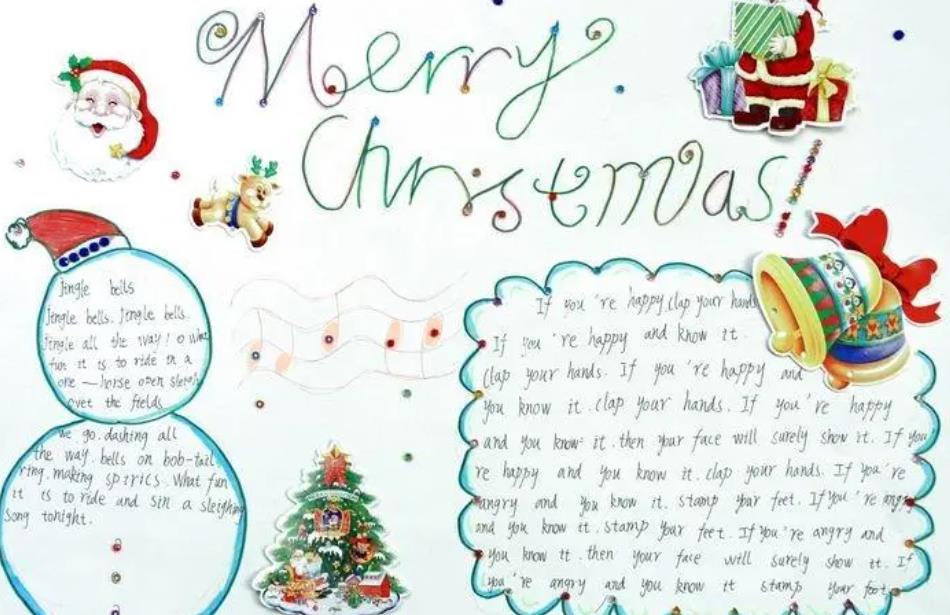 Merry
Christmas!
Jingle bells
Jingle bells. Jingle bells.
Jingle all the way! O what
fun it is to ride in a
one — horse open sleigh
over the fields
we go. dashing all
the way. bells on bob-tail
ring. making spirics. What fun
it is to ride and sin a sleighing
song tonight.
If you're happy clap your hands
If you're happy and know it.
clap your hands. If you're happy and
you know it. clap your hands. If you're happy
and you know it. then your face will surely show it. If you
re happy and you know it. clap your hands. If you're
angry and you know it. stamp your feet. If you're angry
and you know it. stamp your feet. If you're angry and
you know it. then your face will surely show it. If
you're angry and you know it stamp your foot.